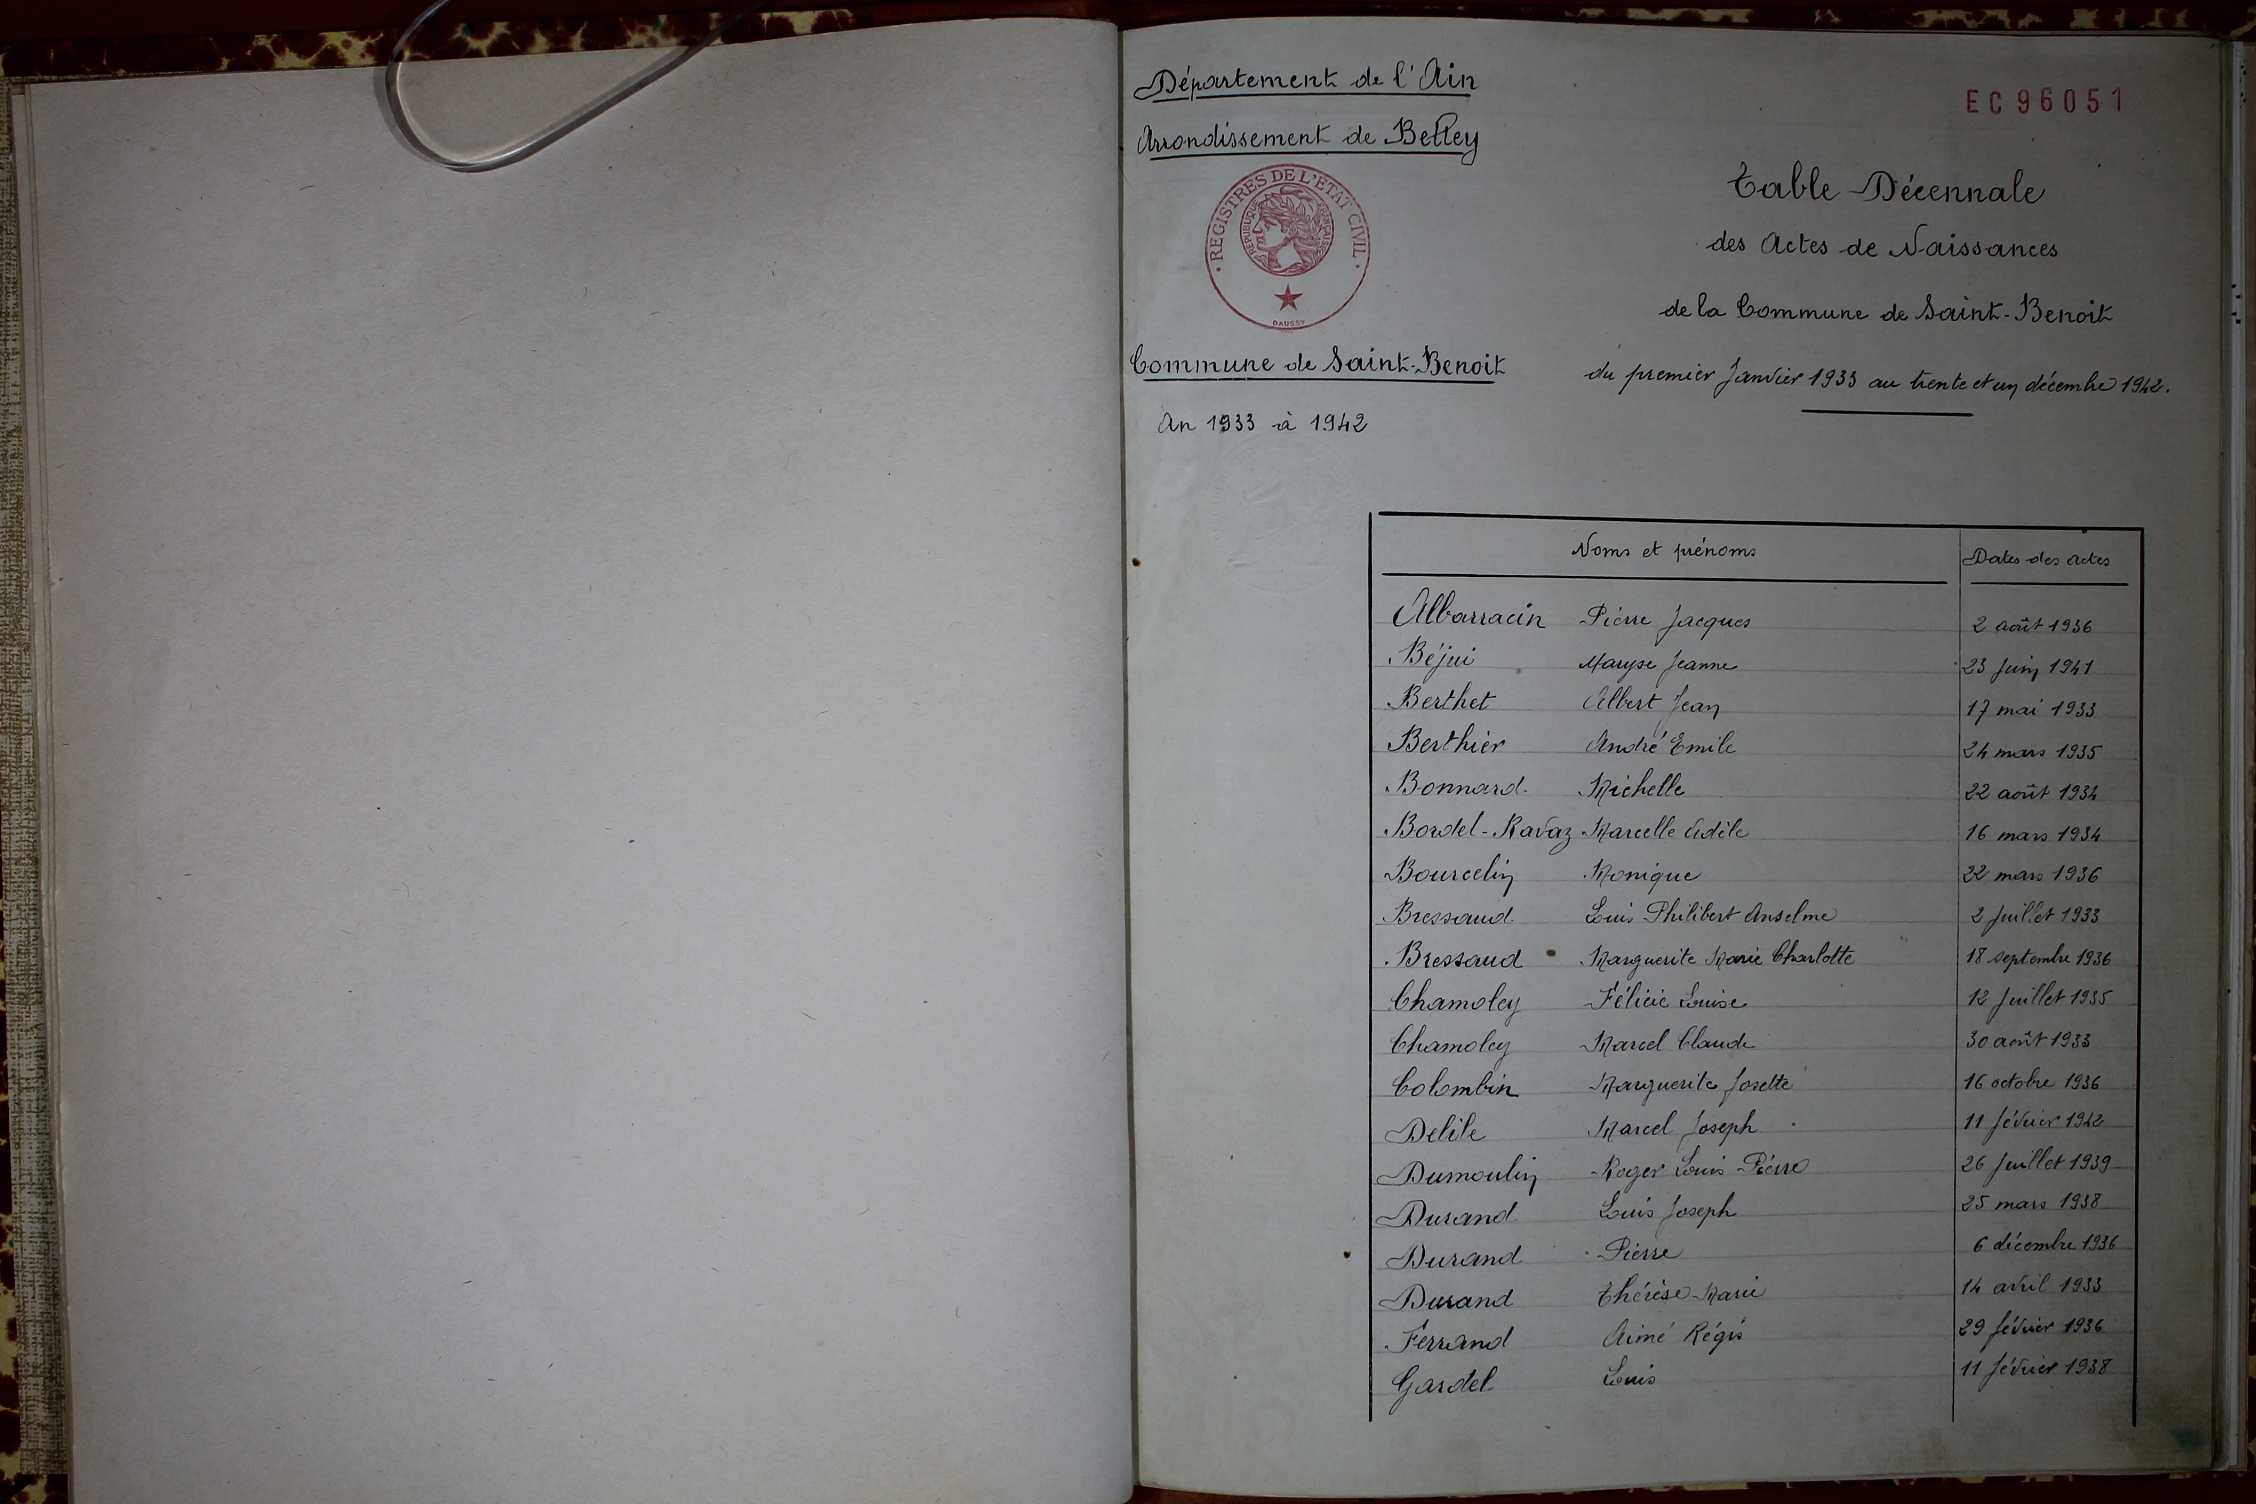 Département de l'Ain
EC96051
Arrondissement de Belley
REGISTRES DE L'ETAT CIVIL
REPUBLIQUE FRANÇAISE
DAUSSY
Table Décennale
des Actes de Naissances
de la Commune de Saint-Benoit
Commune de Saint-Benoit
du premier Janvier 1933 au trente et un décembre 1942.
An 1933 à 1942
Noms et prénoms Dates des actes
Albarracin Pierre Jacques 2 août 1936
Béjui Maryse Jeanne 23 Juin 1941
Berthet Albert Jean 17 mai 1933
Berthier André Emile 24 mars 1935
Bonnard Michelle 22 août 1934
Bordel-Ravaz Marcelle Adèle 16 mars 1934
Bourcelin Monique 22 mars 1936
Bressaud Louis Philibert Anselme 2 Juillet 1933
Bressaud Marguerite Marie Charlotte 18 septembre 1936
Chamoley Félicie Louise 12 Juillet 1935
Chamoley Marcel Claude 30 août 1933
Colombin Marguerite Josette 16 octobre 1936
Delile Marcel Joseph 11 février 1942
Dumoulin Roger Louis Pierre 26 Juillet 1939
Durand Louis Joseph 25 mars 1938
Durand Pierre 6 décembre 1936
Durand Thérèse Marie 14 avril 1933
Ferrand Aimé Régis 29 février 1936
Gardel Louis 11 février 1938